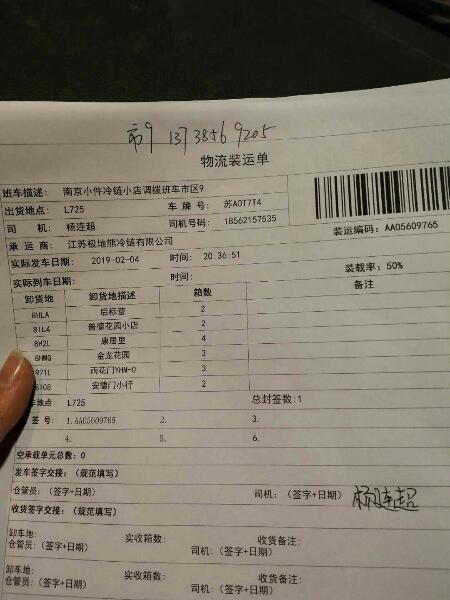 市9 13738569205
物流装运单
班车描述: 南京小件冷链小店调拨班车市区9
出货地点: L725 车 牌 号: 苏A0T7T4
司 机: 杨连超 司机号码: 18562157535
装运编码: AA05609765
承 运 商: 江苏极地熊冷链有限公司
实际发车日期: 2019-02-04 时间: 20:36:51
装载率: 50%
实际到车日期: 时间:
备注
卸货地 卸货地描述 箱数
8HLA 后标营 2
81L4 普德花园小店 2
8H2L 康居里 4
8HMQ 金龙花园 3
971L 雨花门YHM-0 3
8108 安德门小行 2
地点: L725 总封签数:1
签号: 1.AA05609765 2. 3.
4. 5. 6.
空承载单元总数: 0
发车签字交接: (规范填写)
仓管员: (签字+日期) 司机: (签字+日期) 杨连超
收货签字交接: (规范填写)
卸车地: 实收箱数: 收货备注:
仓管员: (签字+日期) 司机: (签字+日期)
卸车地: 实收箱数: 收货备注:
仓管员: (签字+日期) 司机: (签字+日期)